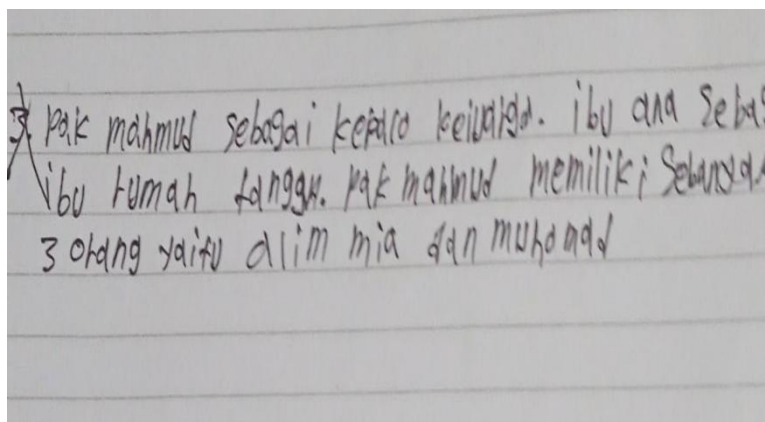 Pak mahmud sebagai kepala keluarga. ibu ana Seba
ibu rumah tangga. Pak mahmud memiliki Sebanya
3 orang yaitu alim mia dan muhamad